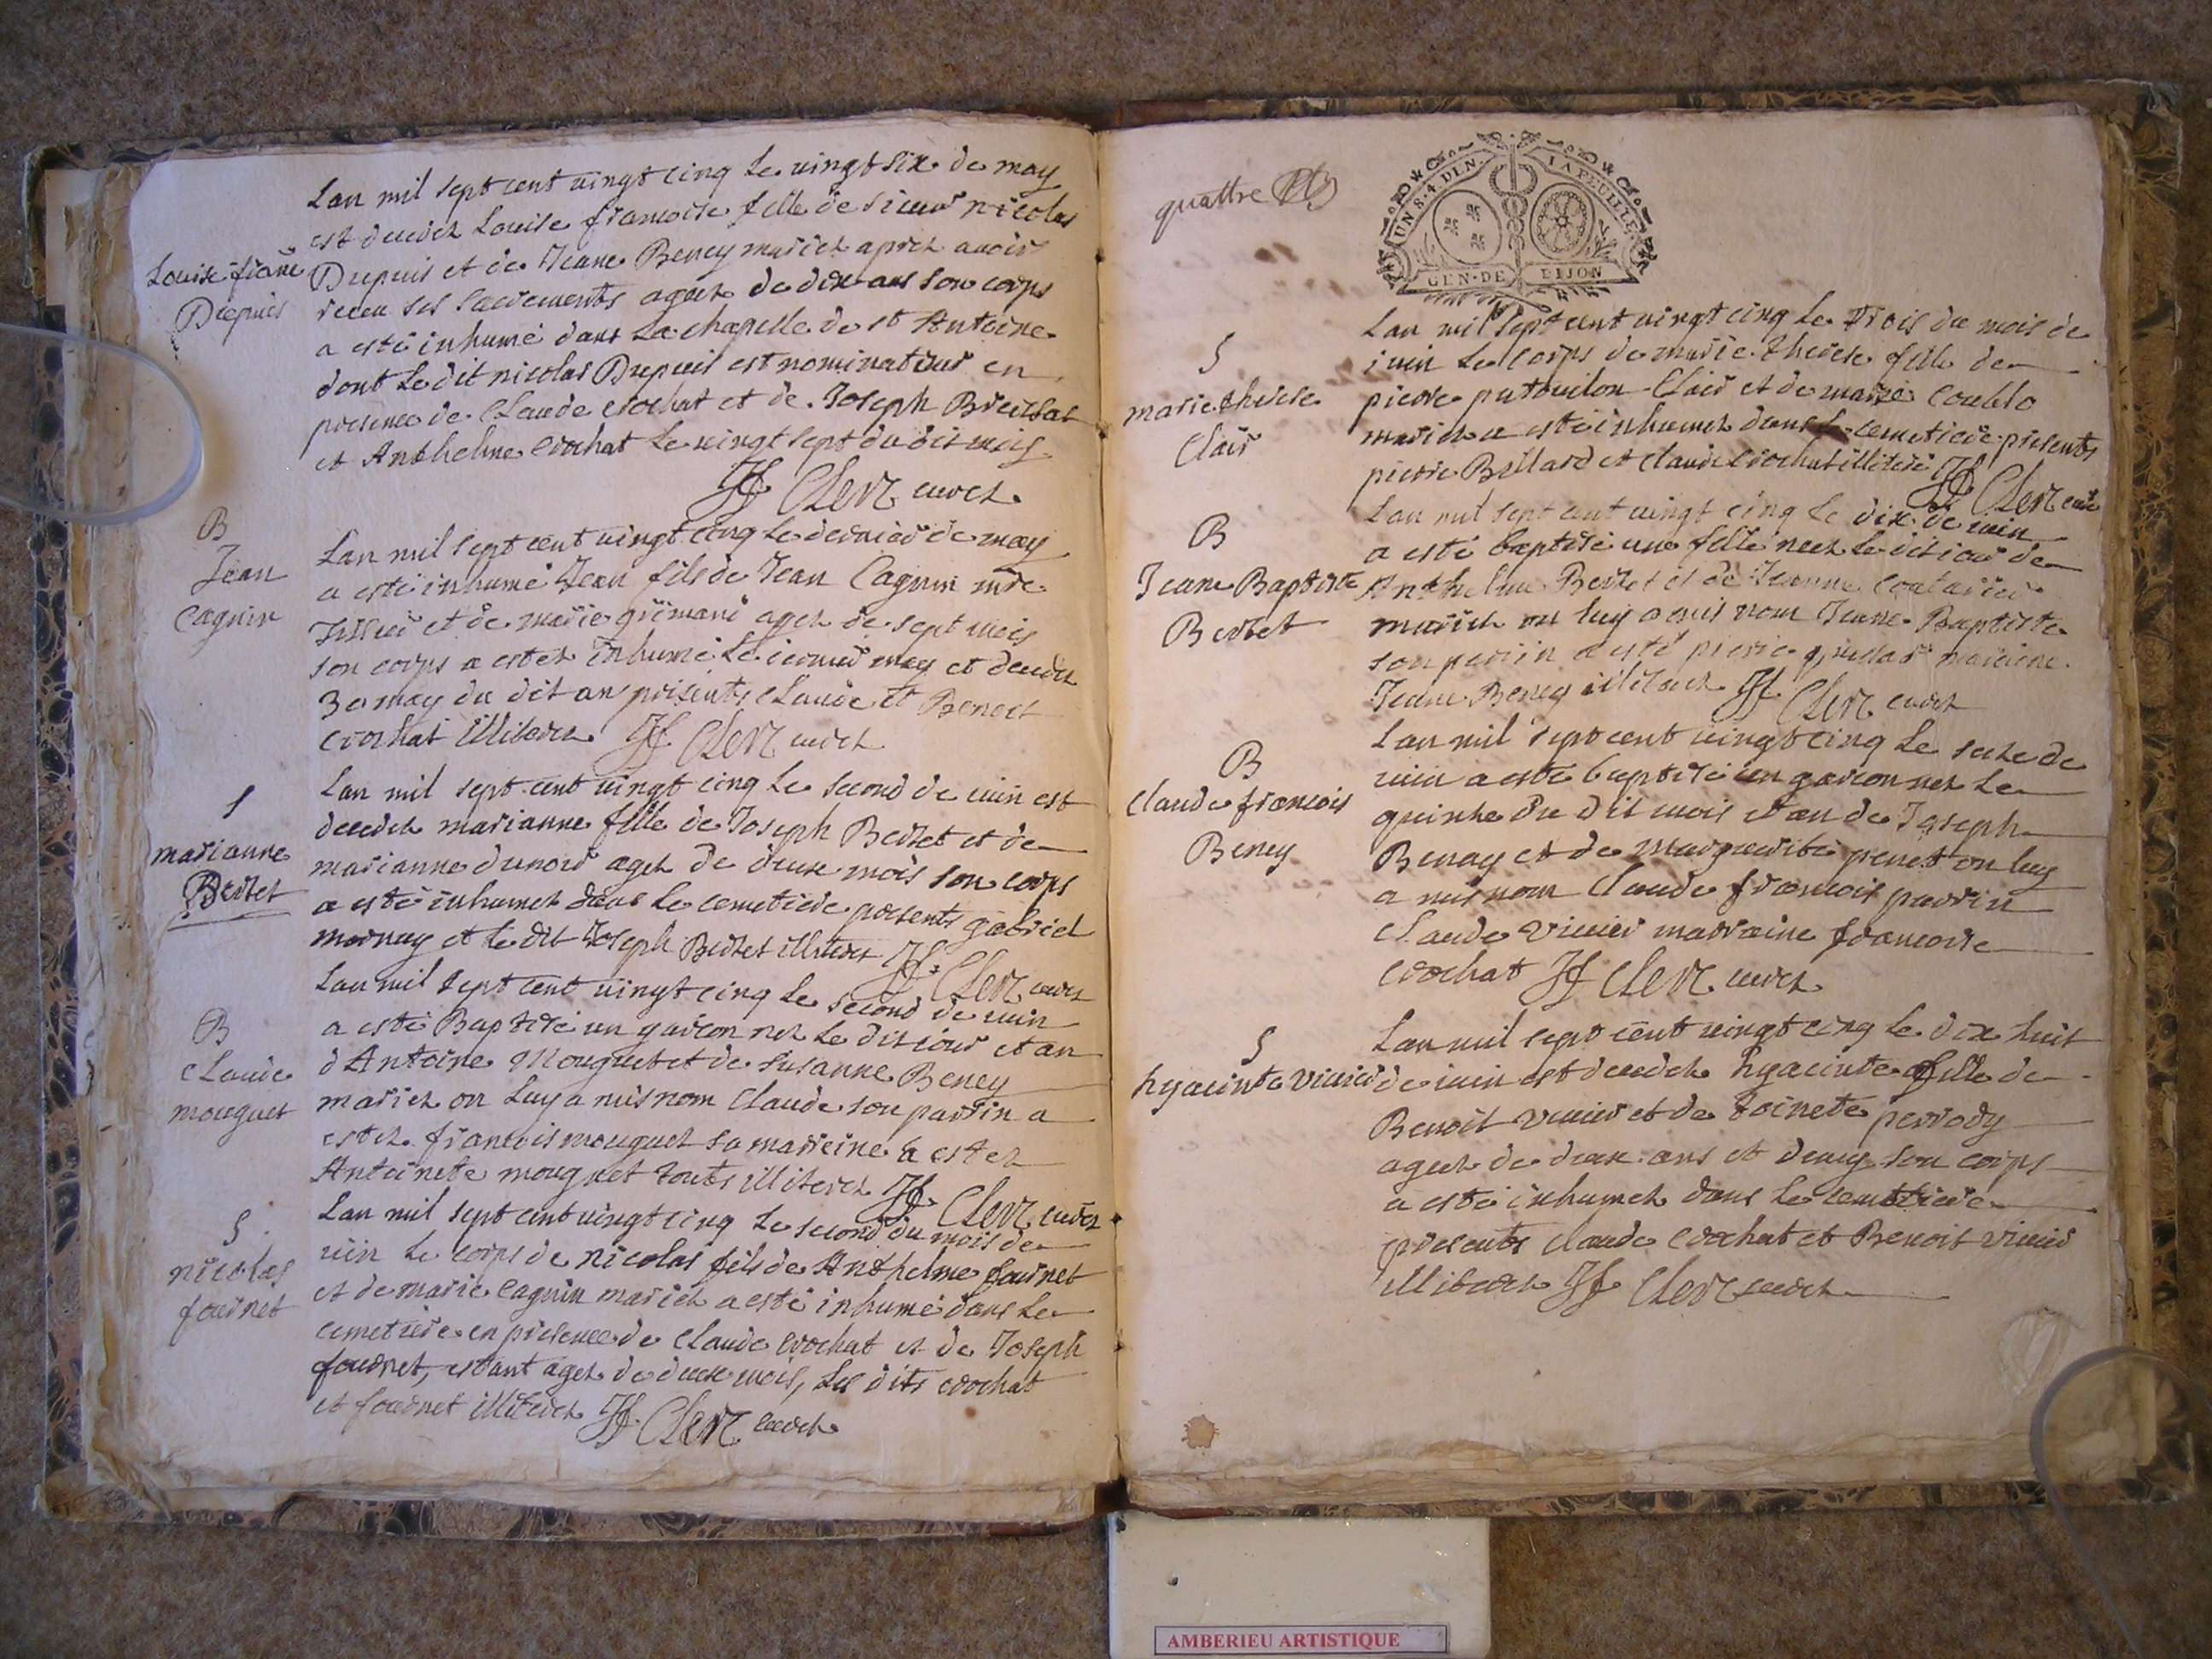 Lan mil sept cent vingt cinq le vingt six de may
est decedez Louise francoise fille de sieur nicolas
Louise frãne
Dupuis
Dupuis et de Jeane Beney mariez aprez avoir
receu ses sacrements agez de dix ans son corps
a esté inhumé dans La chapelle de st Antoine
dont le dit nicolas Dupuis est nominateur en
presence de Claude crochat et de Joseph
et Anthelme crochat le vingt sept du dit mois
Clerc curez
B
Jean
Cagnin
Lan mil sept cent vingt cinq le dernier de may
a esté inhumé Jean fils de Jean Cagnin
et de marie grimand agez de sept mois
son corps a estez inhumé le dernier may et decedez
30 may du dit an presents Claude et Benoit
crochat illiterez Clerc curez
S
marianne
Bertet
Lan mil sept cent vingt cinq le second de iuin est
decedez marianne fille de Joseph Bertet et de
marianne agez de deux mois son corps
a esté inhumez dans le cemetiere presents gabriel
mornay et le dit Joseph Bertet illiterez Clerc curez
B
Claude
mouguet
Lan mil sept cent vingt cinq le second de iuin
a esté Baptisé un garcon nez le dit iour et an
d'Antoine Mouguet et de Susanne Beney
mariez on Luy a mis nom Claude son parrin a
estez francois mouguet sa marreine a estez
Antoinete mouguet touts illiterez Clerc curez
S
nicolas
fournet
Lan mil sept cent vingt cinq le second du mois de
iuin le corps de nicolas fils de Anthelme fournet
et de marie Cagnin mariez a esté inhumé dans le
cemetiere en presence de Claude crochat et de Joseph
fournet, estant agez de deux mois, les dits crochat
et fournet illiterez Clerc curez
quattre
UN S. 4. DEN. LA FEUILLE
GEN. DE DIJON
S
marie therese
Clair
Lan mil sept cent vingt cinq le trois du mois de
iuin le corps de marie therese fille de
pierre patouilon Clair et de marie
mariez a esté inhumez dans le cemetiere presents
pierre Billard et claude crochat illiteré Clerc curé
B
Jeane Baptiste
Bertet
Lan mil sept cent vingt cinq le dix de iuin
a esté baptisé une fille neez le dit iour de
Anthelme Bertet et de Jeanne
mariez on luy a mis nom Jeane Baptiste
son parrin a esté pierre marreine
Jeane Beney illiterez Clerc curez
B
Claude francois
Beney
Lan mil sept cent vingt cinq le seize de
iuin a esté baptisé un garcon nez le
quinze du dit mois et an de Joseph
Benay et de marguerite on luy
a mis nom Claude francois parrin
Claude vivier marraine francoise
crochat Clerc curez
S
hyacinte vivier
Lan mil sept cent vingt cinq le dix huit
de iuin est decedez hyacinte fille de
Benoit vivier et de toinete perrody
agez de deux ans et demy son corps
a esté inhumez dans le cemetiere
presents claude crochat et Benoit vivier
illiterez Clerc curez
AMBERIEU ARTISTIQUE